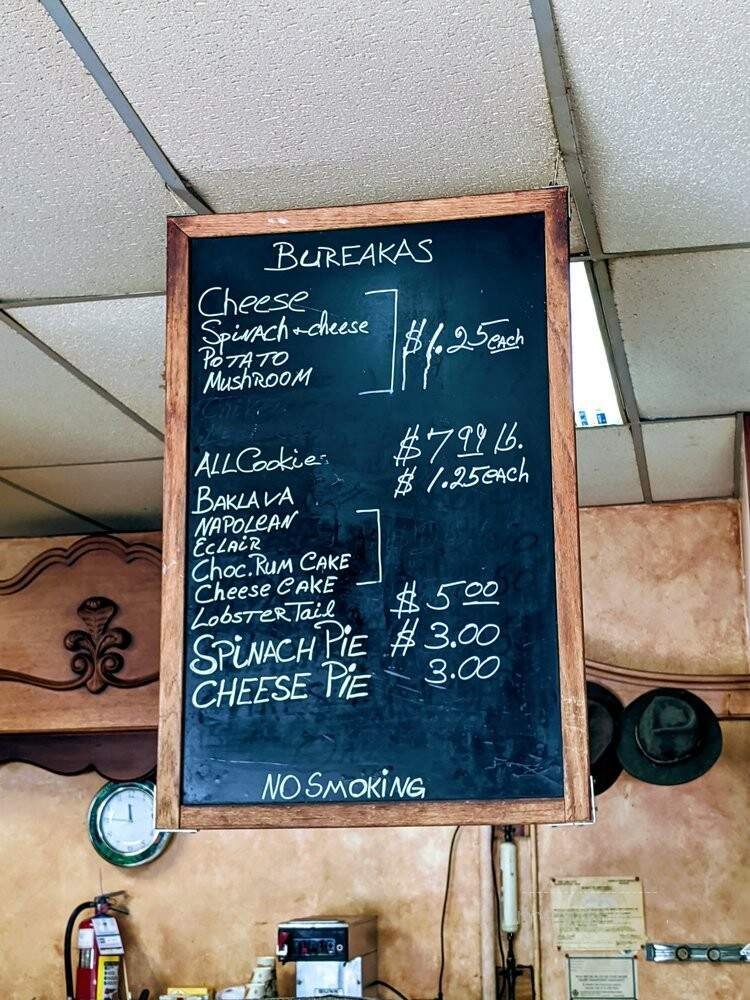 BUREAKAS
Cheese
Spinach + cheese
POTATO
MushROOM
$1.25 each
ALL Cookies $7 99 lb.
BAKLAVA $1.25 each
NAPOLEAN
EcLAIR
Choc. Rum CAKE
Cheese CAKE
LobsTeR Tail $5 00
SPiNACH PiE $3.00
CHEESE PiE 3.00
NO SMOKiNG
BUNN